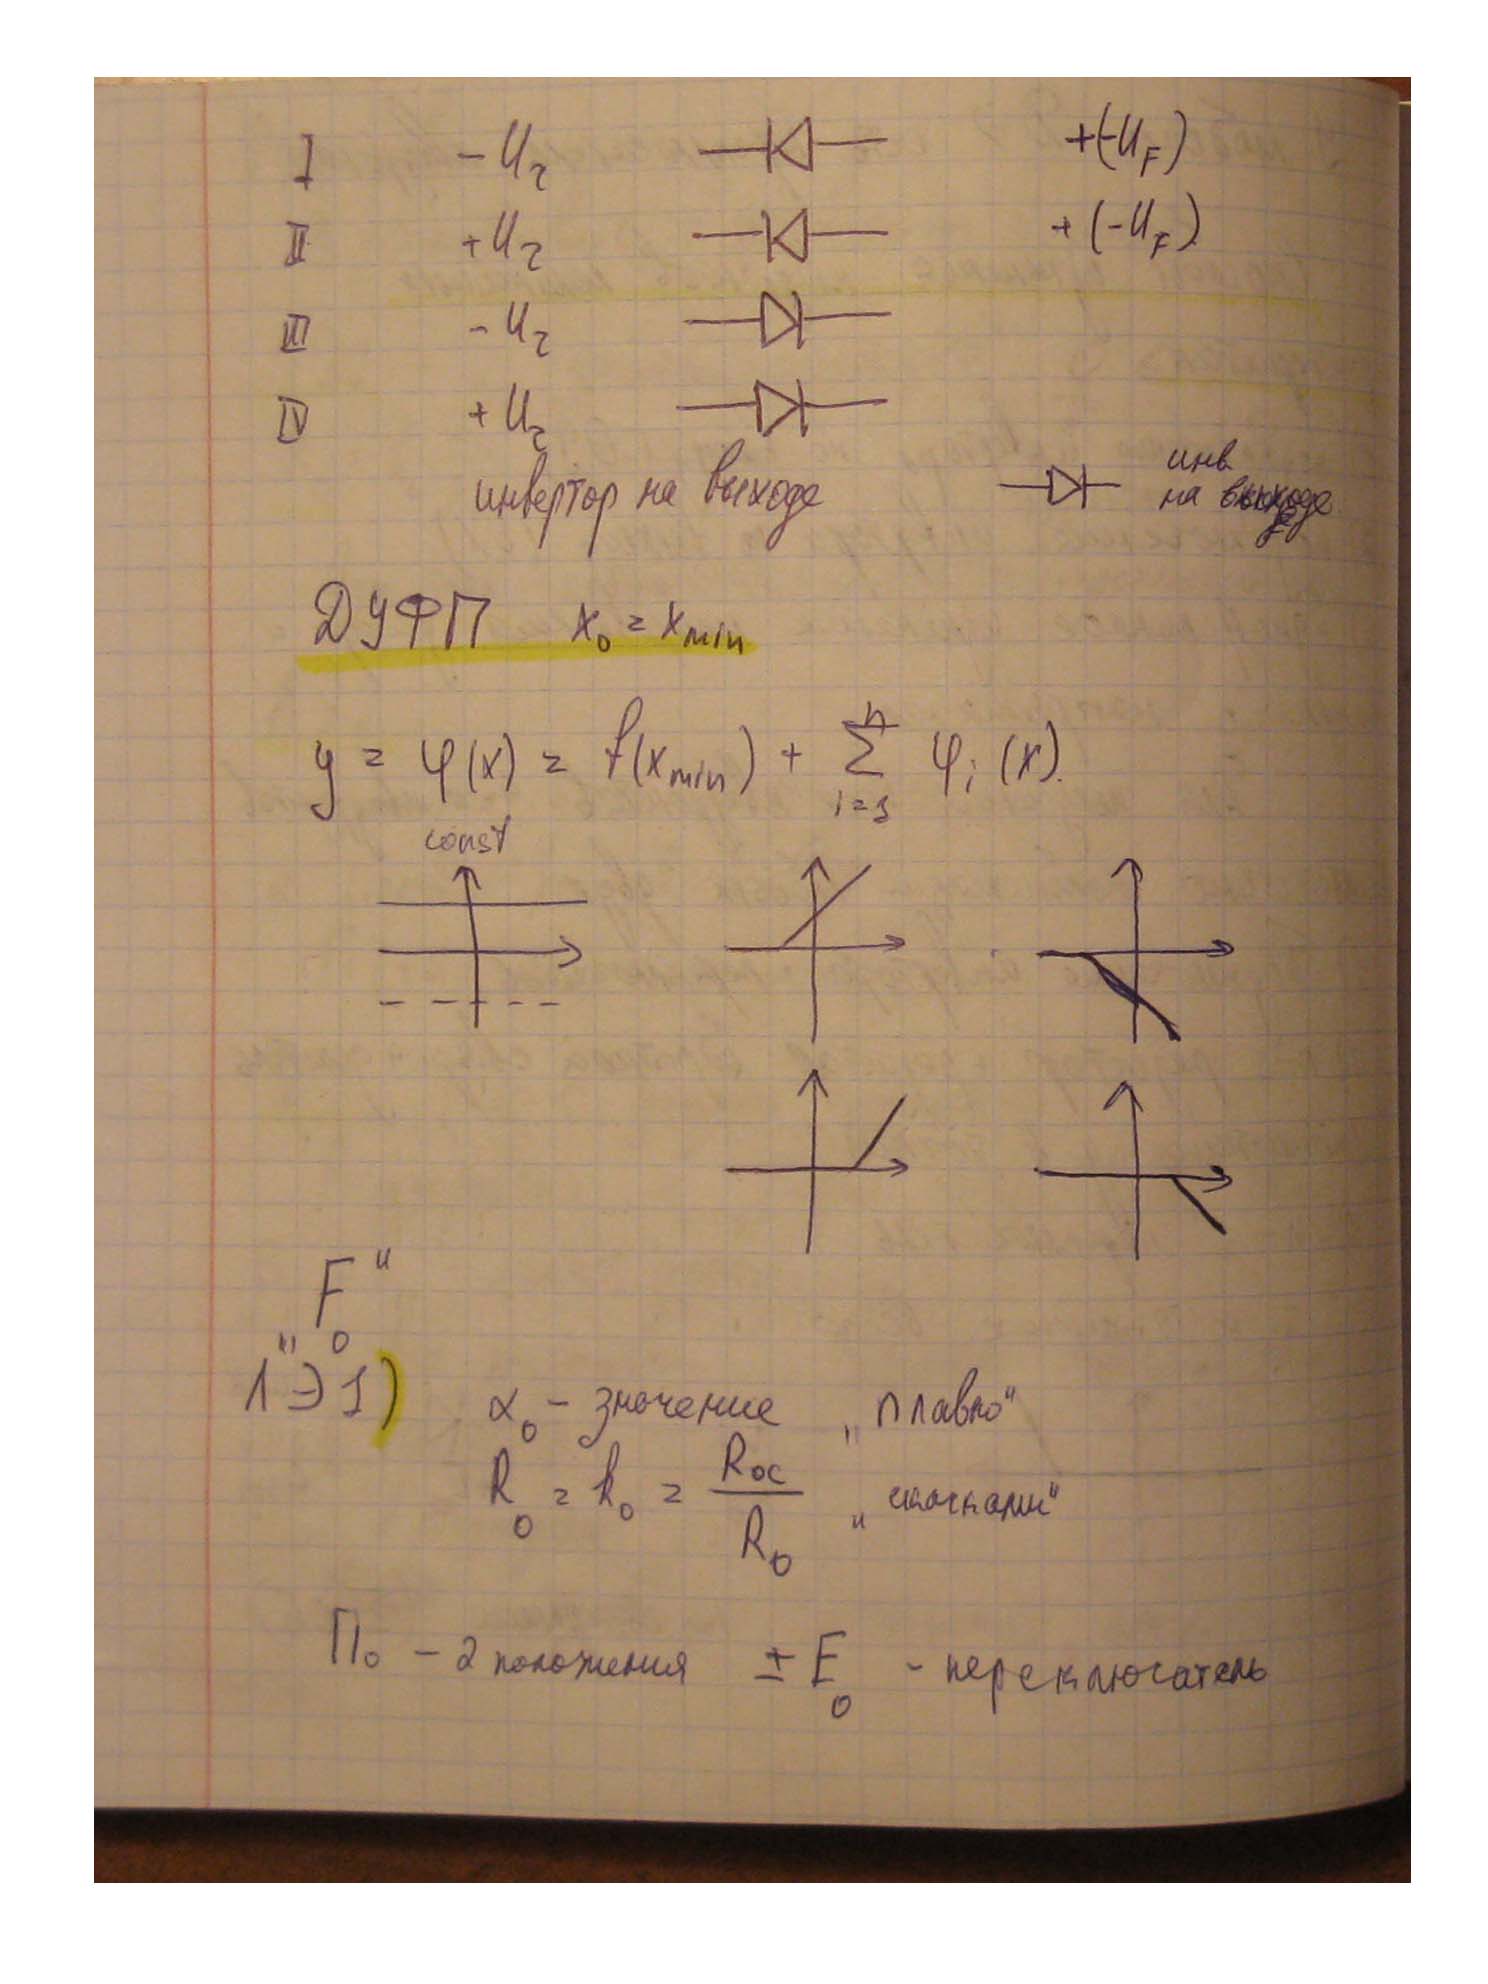 I -U₂ +(-U_F)
II +U₂ +(-U_F)
III -U₂
IV +U₂
инвертор на выходе инв. на выходе
ДУФП x₀ = x_min
y = φ(x) = f(x_min) + Σ_{i=1}^{n} φ_i(x)
const
„F₀"
ЛЭ1) α₀ - значение „плавно"
R₀ = k₀ = R_ос / R₀ „скачками"
П₀ - 2 положения ± E₀ - переключатель